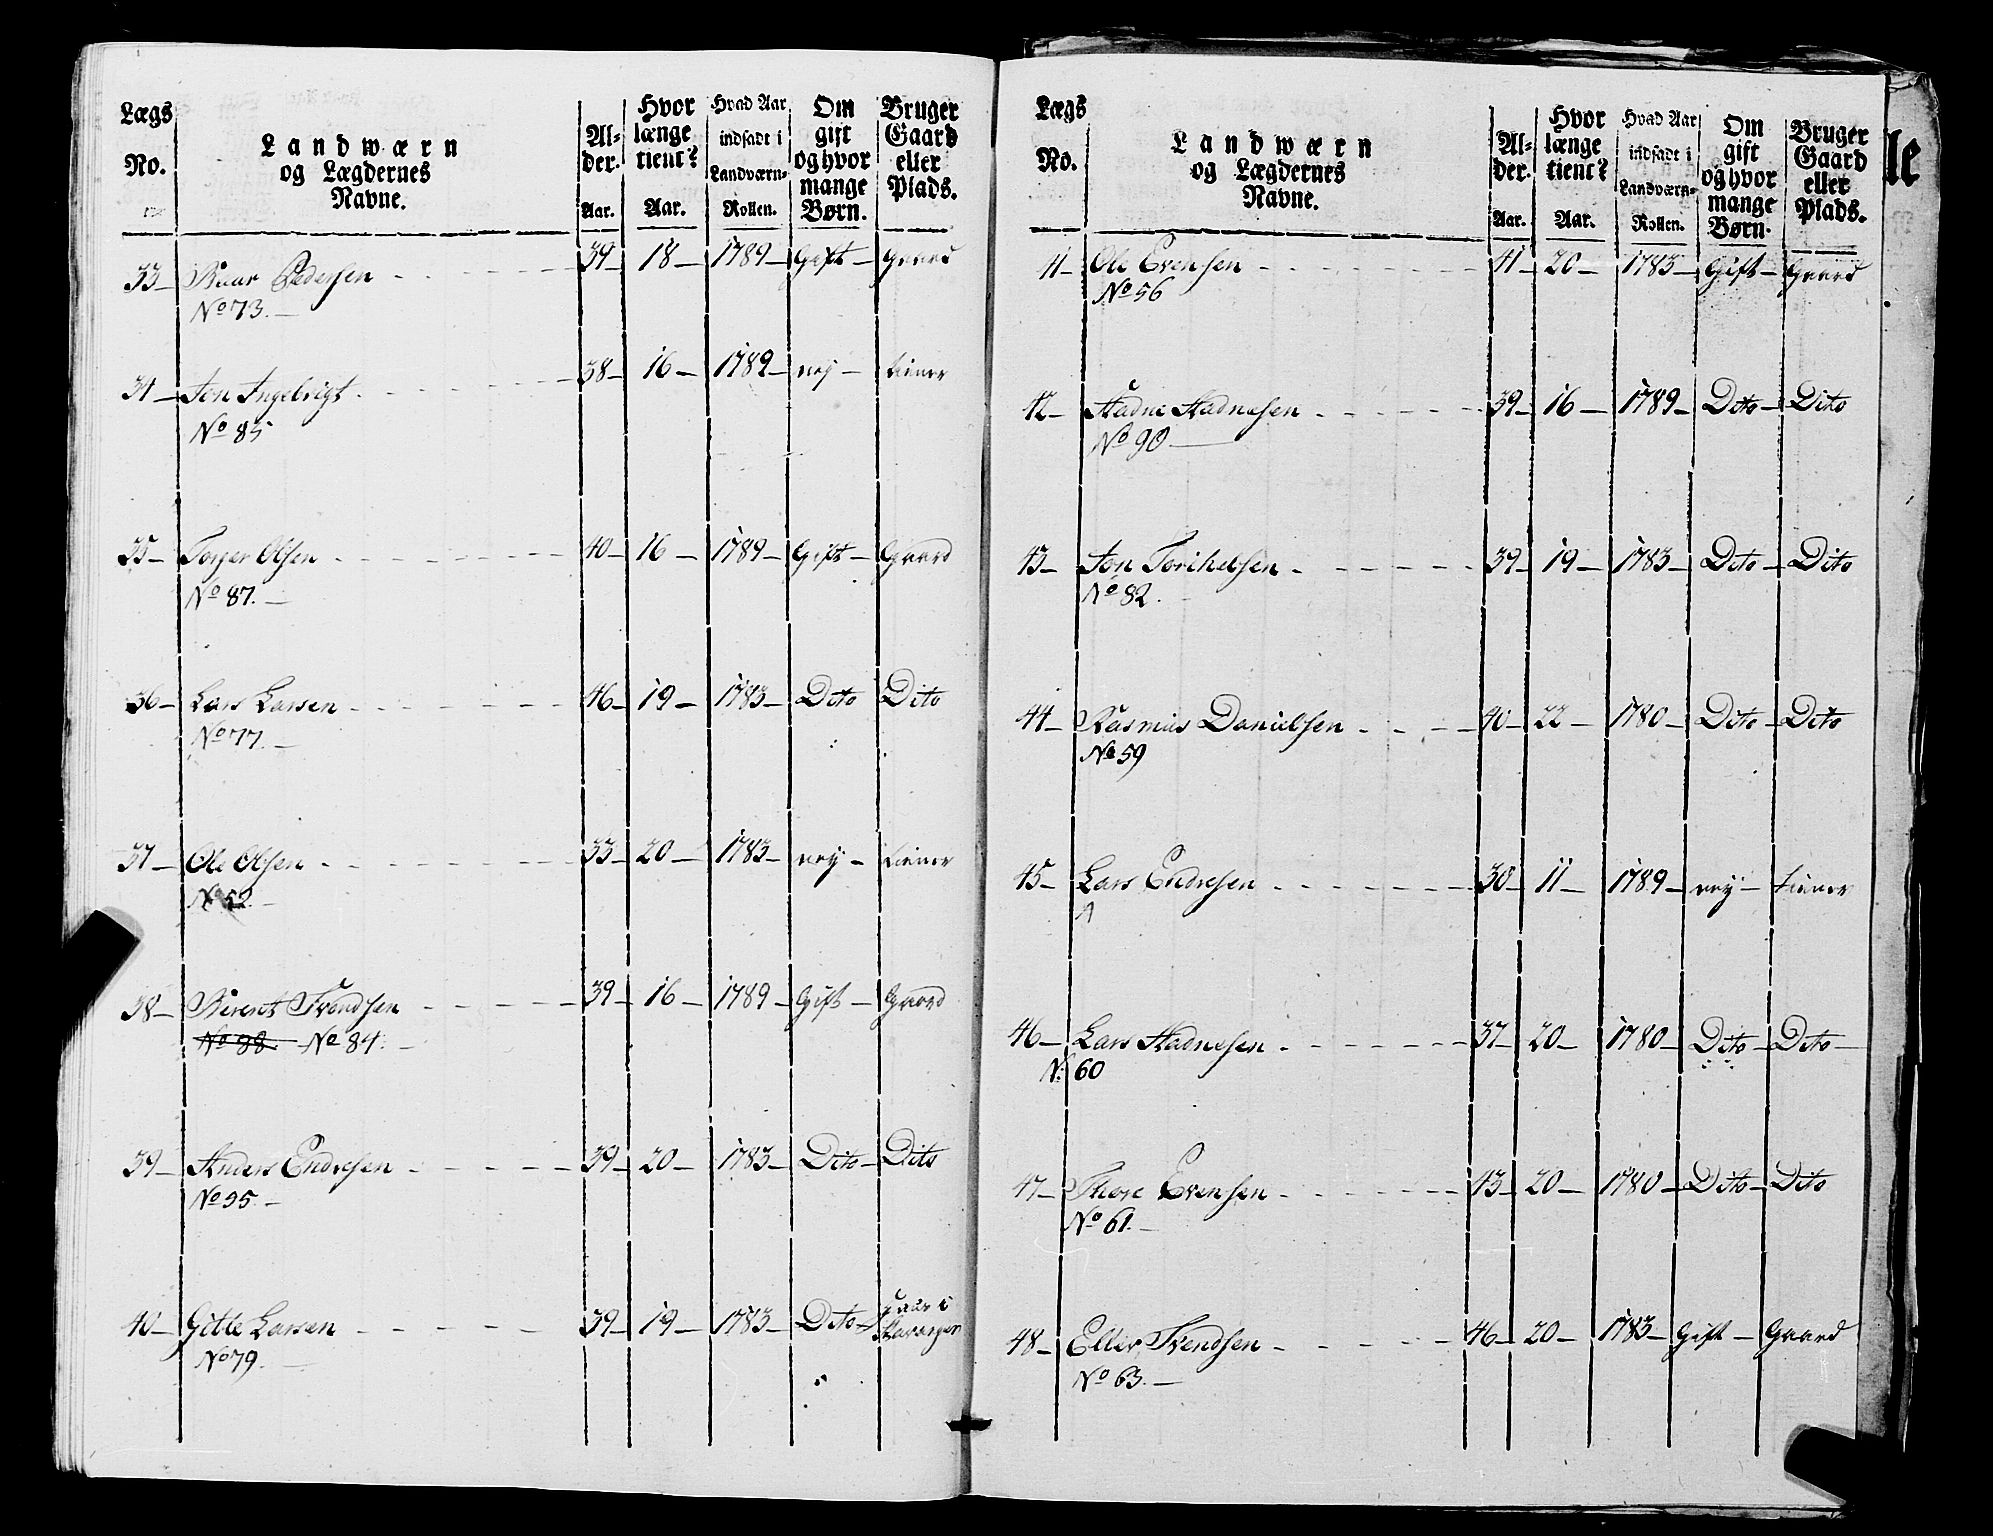 Lægs No. | Landwærn og Lægdernes Navne. | Al-der. Aar. | Hvor længe tient? Aar. | Hvad Aar indsadt i Landværn-Rollen. | Om gift og hvor mange Børn. | Bruger Gaard eller Plads.
33 – Pedersen - - - 39 – 18 – 1789 – Gift – Gaard
No 73. –
34 – Jon Ingebrigt - - - 38 – 16 – 1789 – ney – tiener
No 85
35 – Torger Olsen - - - 40 – 16 – 1789 – Gift – Gaard
No 87. –
36 – Lars Larsen - - - 46 – 19 – 1783 – Dito Dito
No 77. –
37 – Ole Olsen - - - 33 – 20 – 1783 – ney – tiener
No 52. –
38 – Berent Svendsen - - - 39 – 16 – 1789 – Gift – Gaard
No 88. – No 84. –
39 – Anders Endresen - - - 39 – 20 – 1783 – Dito – Dito
No 95. –
40 – Gitle Larsen - - - 39 – 19 – 1783 – Dito – i Stavanger
No 79. –
Lægs No. | Landwærn og Lægdernes Navne. | Al-der. Aar. | Hvor længe tient? Aar. | Hvad Aar indsadt i Landværn-Rollen. | Om gift og hvor mange Børn. | Bruger Gaard eller Plads.
41 – Ole Evensen - - - 41 – 20 – 1783 – Gift – Gaard
No 56
42 – Aadne Aadnesen - - - 39 – 16 – 1789 – Dito – Dito
No 90 –
43 – Jon Torkelsen - - - 39 – 19 – 1783 – Dito – Dito
No 82. –
44 – Rasmus Danielsen - - - 40 – 22 – 1780 – Dito – Dito
No 59
45 – Lars Endresen - - - 30 – 11 – 1789 – ney – tiener
46 – Lars Aadnesen - - - 37 – 20 – 1780 – Dito – Dito –
N: 60
47 – Thore Evensen - - - 43 – 20 – 1780 – Dito – Dito
No 61. –
48 – Eller Svendsen - - - 46 – 20 – 1783 – Gift – Gaard
No 63. –
le